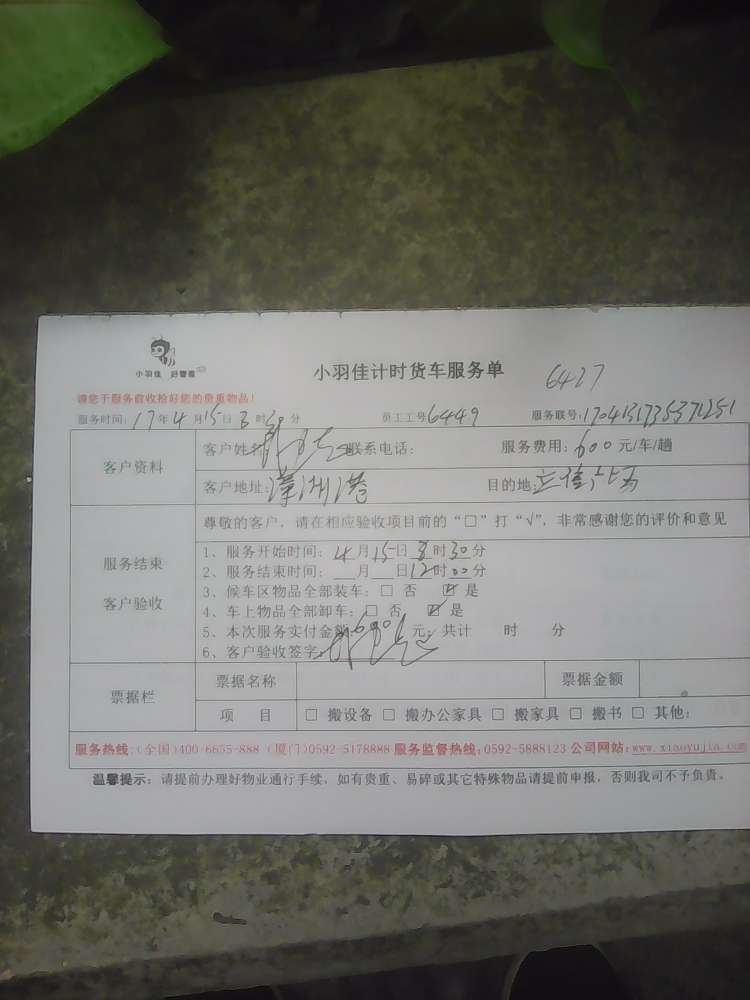 小羽佳 好管家
小羽佳计时货车服务单
6427
请您于服务前收拾好您的贵重物品!
服务时间:17年4月15日8时30分 员工工号6449 服务联号:
客户资料
客户姓名 联系电话: 服务费用:600元/车/趟
客户地址: 目的地:
服务结束
客户验收
尊敬的客户,请在相应验收项目前的“□”打“√”,非常感谢您的评价和意见
1、服务开始时间:4月15日8时30分
2、服务结束时间:___月___日12时00分
3、候车区物品全部装车:□ 否 ☑ 是
4、车上物品全部卸车:□ 否 ☑ 是
5、本次服务实付金额:600元;共计 时 分
6、客户验收签字:
票据栏
票据名称 票据金额
项 目 □ 搬设备 □ 搬办公家具 □ 搬家具 □ 搬书 □ 其他:
服务热线:(全国)400-6655-888 (厦门)0592-5178888 服务监督热线:0592-5888123 公司网站:www.xiaoyujia.com
温馨提示:请提前办理好物业通行手续,如有贵重、易碎或其它特殊物品请提前申报,否则我司不予负责。